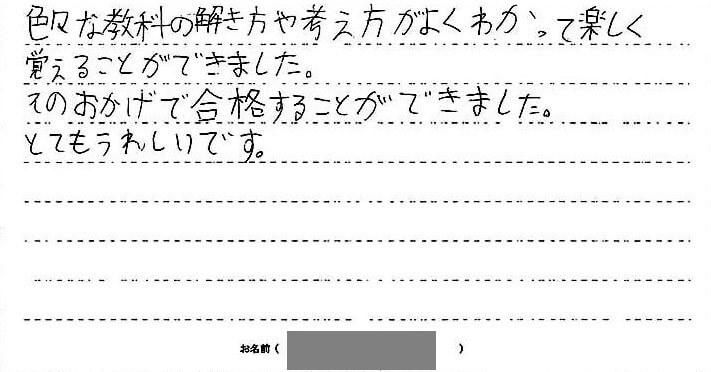 色々な教科の解き方や考え方がよくわかって楽しく
覚えることができました。
そのおかげで合格することができました。
とてもうれしいです。
お名前（ ）